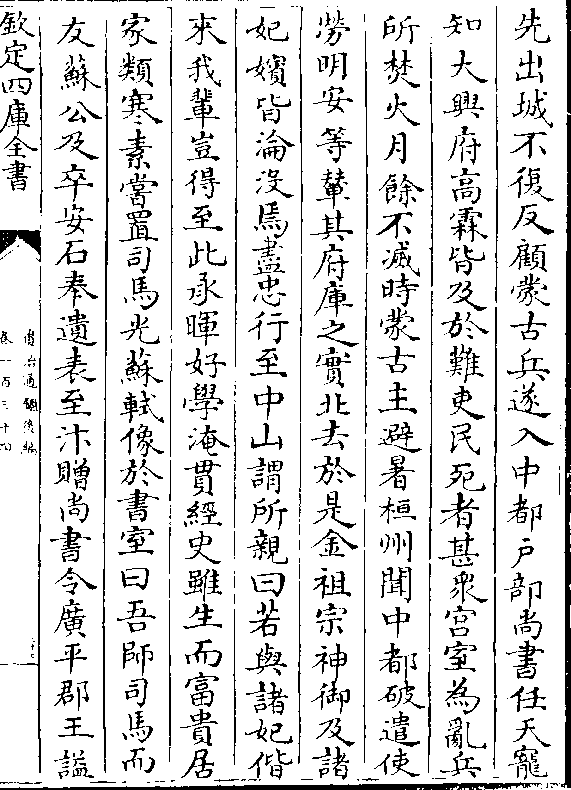 先出城不復反顧蒙古兵遂入中都户部尚書任天寵
知大興府高霖皆及於難吏民死者甚衆宫室為亂兵
所焚火月餘不滅時蒙古主避暑桓州聞中都破遣使
勞明安等輦其府庫之實北去於是金祖宗神御及諸
妃嬪皆淪没焉盡忠行至中山謂所親曰若與諸妃偕
來我輩豈得至此承暉好學淹貫經史雖生而富貴居
家類寒素嘗置司馬光蘇軾像於書室曰吾師司馬而
友蘇公及卒安石奉遺表至汴贈尚書令廣平郡王諡
欽定四庫全書
資治通鑑後編
卷一百三十四